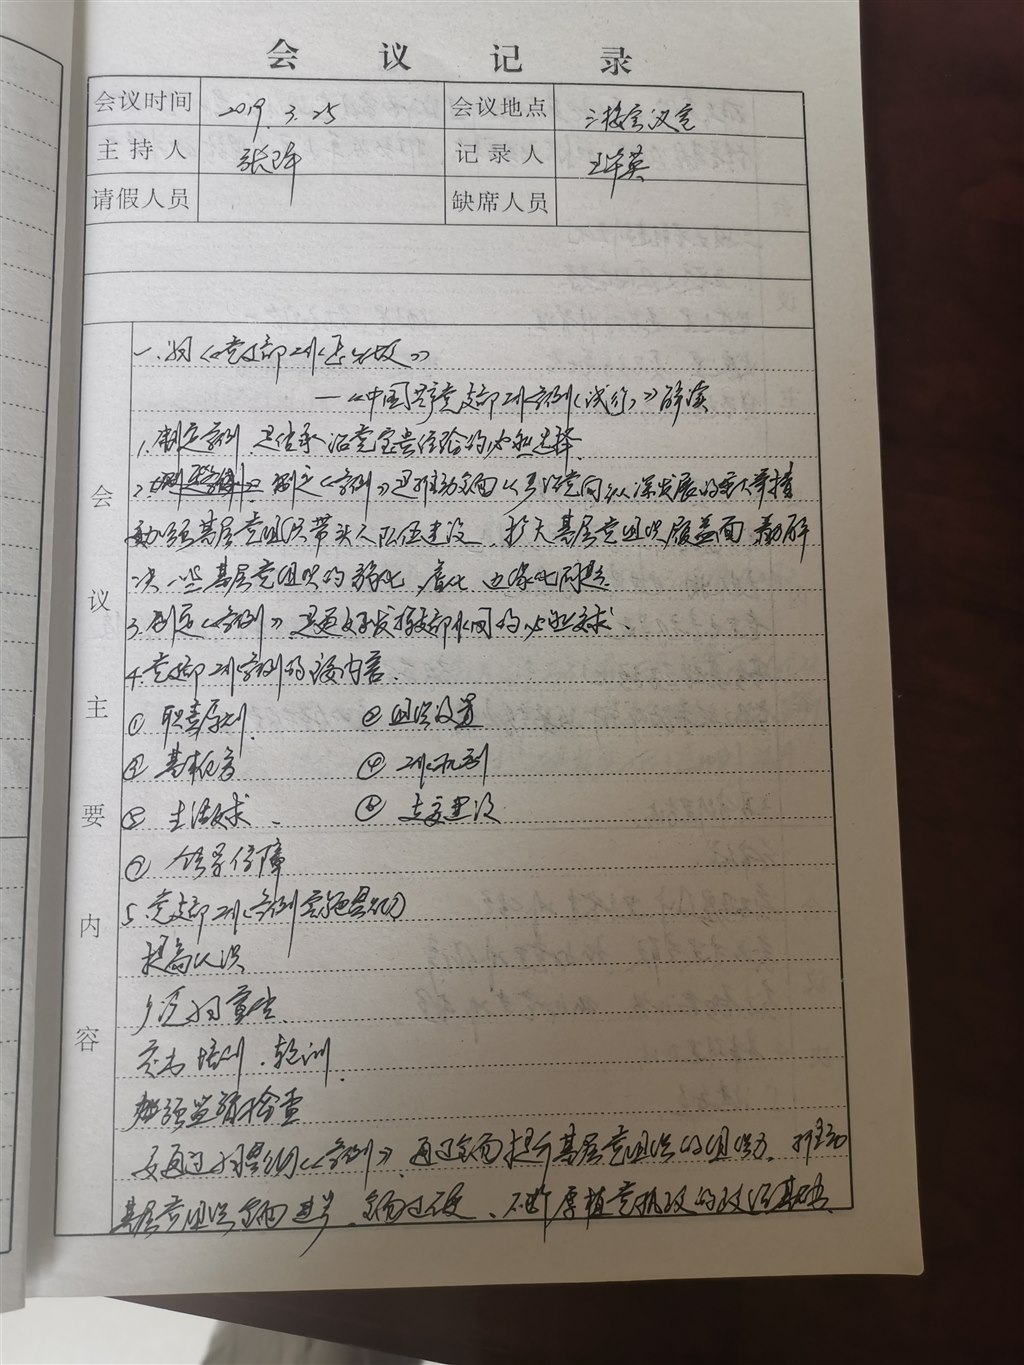 会议记录
会议时间 2019.3.25 会议地点 三楼会议室
主持人 张 记录人 王华英
请假人员 缺席人员
会议主要内容
一、习《党支部工作怎么做》
—《中国共产党支部工作条例(试行)》解读
1. 制定条例 是传承治党宝贵经验的必然选择
2. 制定《条例》是推动全面从严治党向纵深发展的重大举措
加强基层党组织带头人队伍建设、扩大基层党组织覆盖面 解
决一些基层党组织的弱化、虚化、边缘化问题.
3. 制定《条例》是更好发挥支部作用的必然要求.
4. 党支部工作条例的主要内容.
① 职责原则 ② 组织设置
③ 基本任务 ④ 工作机制
⑤ 生活要求. ⑥ 支委建设
⑦ 领导保障
5. 党支部工作条例实施贯彻
提高认识
习重点.
培训、轮训.
加强监督检查
要通过习贯彻《条例》、通过全面提升基层党组织的组织力、推动
基层党组织全面进步、全面过硬、不断厚植党执政的政治基础.